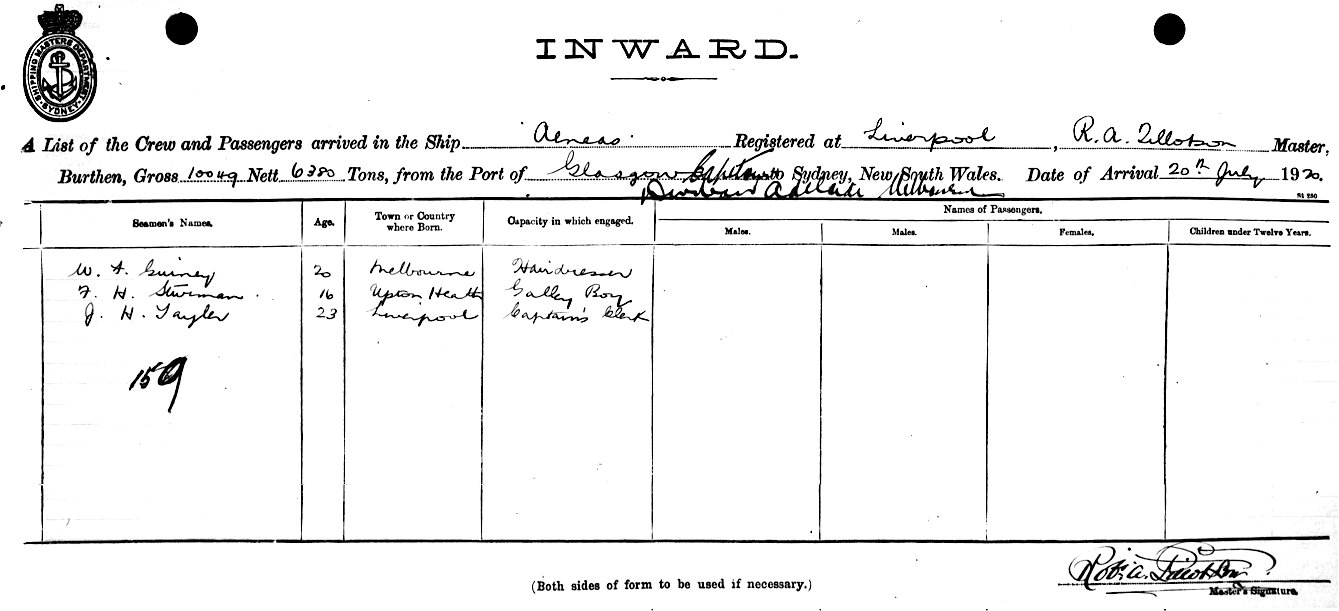 SHIPPING MASTERS DEPARTMENT SYDNEY
INWARD.
A List of the Crew and Passengers arrived in the Ship Aeneas. Registered at Liverpool, R. A. Tillotson Master,
Burthen, Gross 10049 Nett 6380 Tons, from the Port of Glasgow Capetown to Sydney, New South Wales. Date of Arrival 20th July 1920.
Durban Adelaide Melbourne
S1 280
Seamen's Names. Age. Town or Country where Born. Capacity in which engaged. Names of Passengers.
Males. Males. Females. Children under Twelve Years.
W. A. Guiney 20 Melbourne Hairdresser
F. H. Sturman 16 Upton Heath Galley Boy
J. H. Tayler 23 Liverpool Captain's Clerk
159
(Both sides of form to be used if necessary.)
Robt. A. Tillotson
Master's Signature.